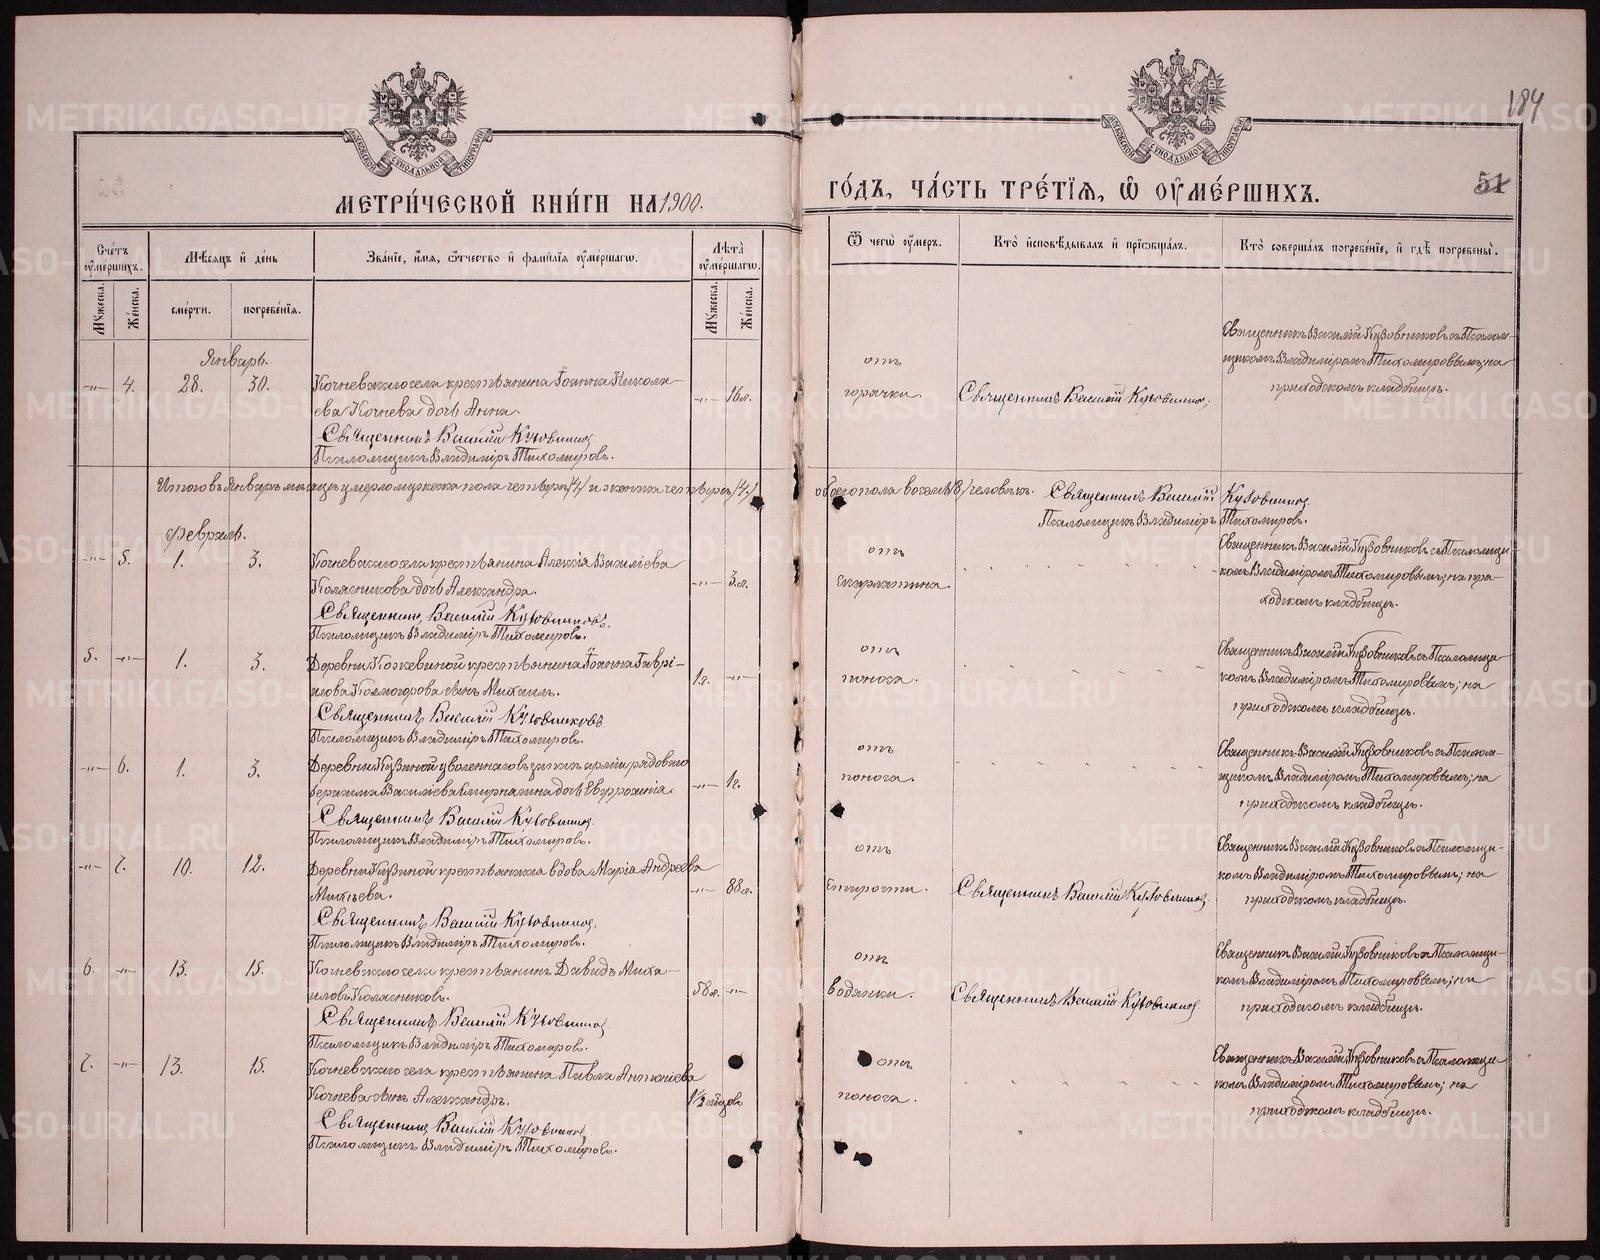 184
51
МОСКОВСКОЙ СѴНОДАЛЬНОЙ ТИПОГРАФІИ
МОСКОВСКОЙ СѴНОДАЛЬНОЙ ТИПОГРАФІИ
МЕТРИ́ЧЕСКОЙ КНИ́ГИ НА 1900.
ГО́ДЪ, ЧА́СТЬ ТРЕ́ТІѦ, Ѡ҆ ОУ҆МЕ́РШИХЪ.
Сче́тъ оу҆ме́ршихъ.
Мꙋжеска.
Же́нска.
Мѣ́сяцъ и҆ де́нь
сме́рти.
погребе́нїѧ.
Зва́нїе, и҆́мѧ, ѻ҆́тчество и҆ фами́лїѧ оу҆ме́ршагѡ.
Лѣ́та оу҆ме́ршагѡ.
Мꙋжеска.
Же́нска.
Ѿ чегѡ̀ оу҆́меръ.
Кто̀ и҆сповѣ́дывалъ и҆ прїѡбща́лъ.
Кто̀ соверша́лъ погребе́нїе, и҆ гдѣ̀ погребены̀.
Январь.
-"- 4. 28. 30.
Кочневскаго села крестьянина Іоанна Никола-
ева Кочнева дочь Анна.
Священникъ Василій Кузовников
Псаломщикъ Владиміръ Тихомировъ.
-"- 16 л.
отъ
горячки.
Священникъ Василій Кузовников,
Священникъ Василій Кузовниковъ съ Псалом-
щикомъ Владиміромъ Тихомировымъ; на
приходскомъ кладбищѣ.
Итого въ Январѣ мѣсяцѣ умерло мужеска пола четверо /4/ и женска четверо /4/,
обоего пола восемь /8/ человѣкъ.
Священникъ Василій Кузовников
Псаломщикъ Владиміръ Тихомировъ.
Февраль.
-"- 5. 1. 3.
Кочневскаго села крестьянина Алексія Василіева
Колясникова дочь Александра.
Священник Василій Кузовников.
Псаломщикъ Владиміръ Тихомировъ.
-"- 3 л.
отъ
Скарлатина.
Священникъ Василій Кузовниковъ съ Псаломщи-
комъ Владиміромъ Тихомировымъ; на при-
ходскомъ кладбищѣ.
5. -"- 1. 3.
Деревни Кожевиной крестьянина Іоанна Гаврі-
илова Колмогорова сынъ Михаилъ.
Священникъ Василій Кузовниковъ
Псаломщикъ Владиміръ Тихомировъ.
1 г. -"-
отъ
поноса.
Священникъ Василій Кузовниковъ съ Псаломщи-
комъ Владиміромъ Тихомировымъ; на
приходскомъ кладбищѣ.
-"- 6. 1. 3.
Деревни Кузиной уволеннаго въ запасъ арміи рядоваго
Герасима Василіева Смирнягина дочь Евфросинія.
Священникъ Василій Кузовников
Псаломщикъ Владиміръ Тихомировъ.
-"- 1 г.
отъ
поноса.
Священникъ Василій Кузовниковъ съ Псалом-
щикомъ Владиміромъ Тихомировымъ; на
приходскомъ кладбищѣ.
-"- 7. 10. 12.
Деревни Кузиной крестьянская вдова Марія Андреева
Михѣева.
Священникъ Василій Кузовников
Псаломщикъ Владиміръ Тихомировъ.
-"- 88 л.
отъ
Старости.
Священникъ Василій Кузовников
Священникъ Василій Кузовниковъ съ Псаломщи-
комъ Владиміромъ Тихомировымъ; на
приходскомъ кладбищѣ.
6. -"- 13. 15.
Кочневскаго села крестьянинъ Давидъ Миха-
иловъ Колясниковъ.
Священникъ Василій Кузовников
Псаломщикъ Владиміръ Тихомировъ.
58 л. -"-
отъ
водянки.
Священникъ Василій Кузовников
Священникъ Василій Кузовниковъ съ Псаломщи-
комъ Владиміромъ Тихомировымъ; на
приходскомъ кладбищѣ.
7. -"- 13. 15.
Кочневскаго села крестьянина Павла Антоніева
Кочнева сынъ Александръ.
Священник Василій Кузовников
Псаломщикъ Владиміръ Тихомировъ.
1½ мѣсяцевъ
отъ
поноса.
Священникъ Василій Кузовниковъ съ Псаломщи-
комъ Владиміромъ Тихомировымъ; на
приходскомъ кладбищѣ.
METRIKI.GASO-URAL.RU